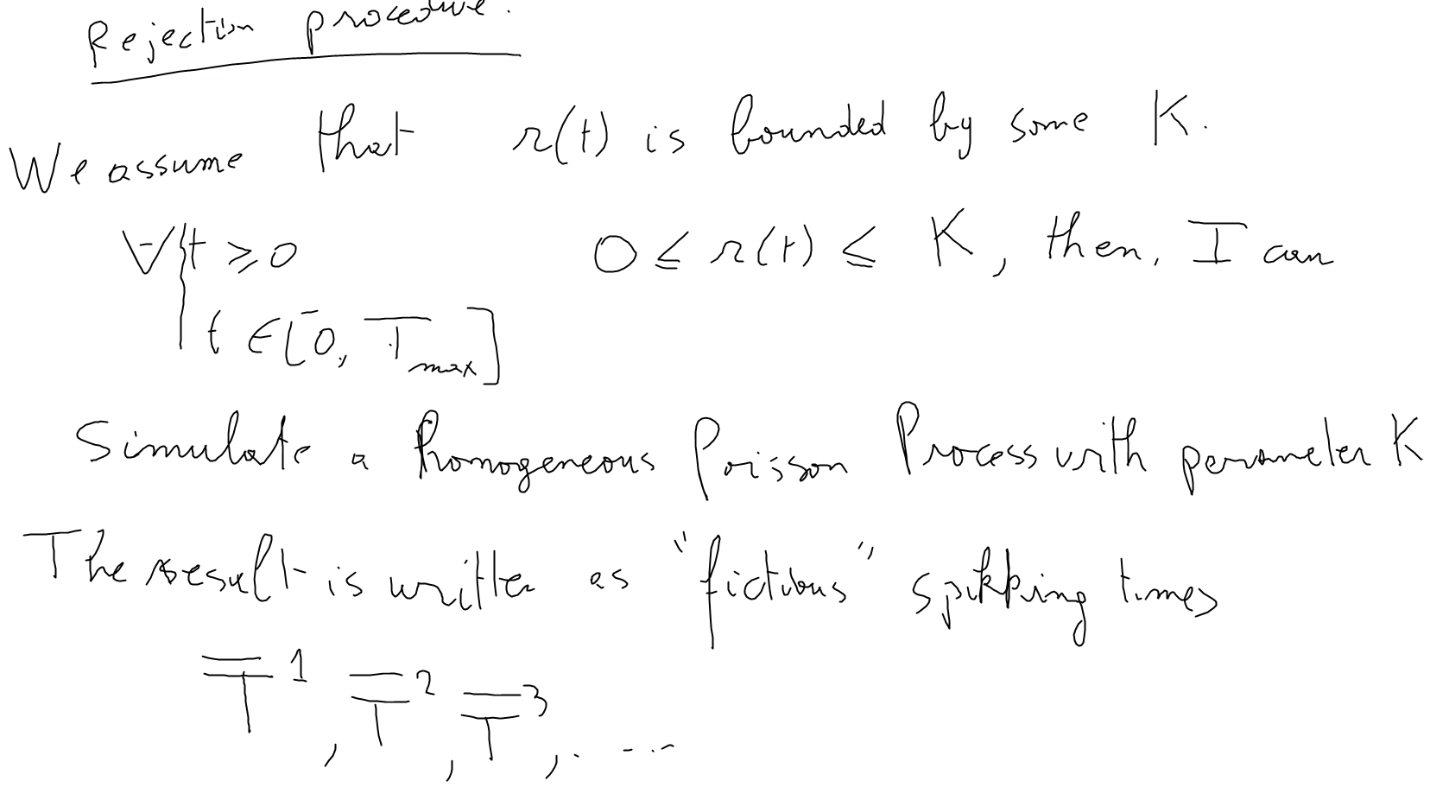 Rejection procedure.
We assume that r(t) is bounded by some K.
∀ t ≥ 0 0 ≤ r(t) ≤ K, then, I can
t ∈ [0, T_max]
Simulate a homogeneous Poisson Process with parameter K
The result is written as "fictious" spikking times
T̅¹, T̅², T̅³, .....